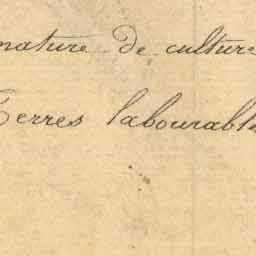 nature de culture
Terres labourabl